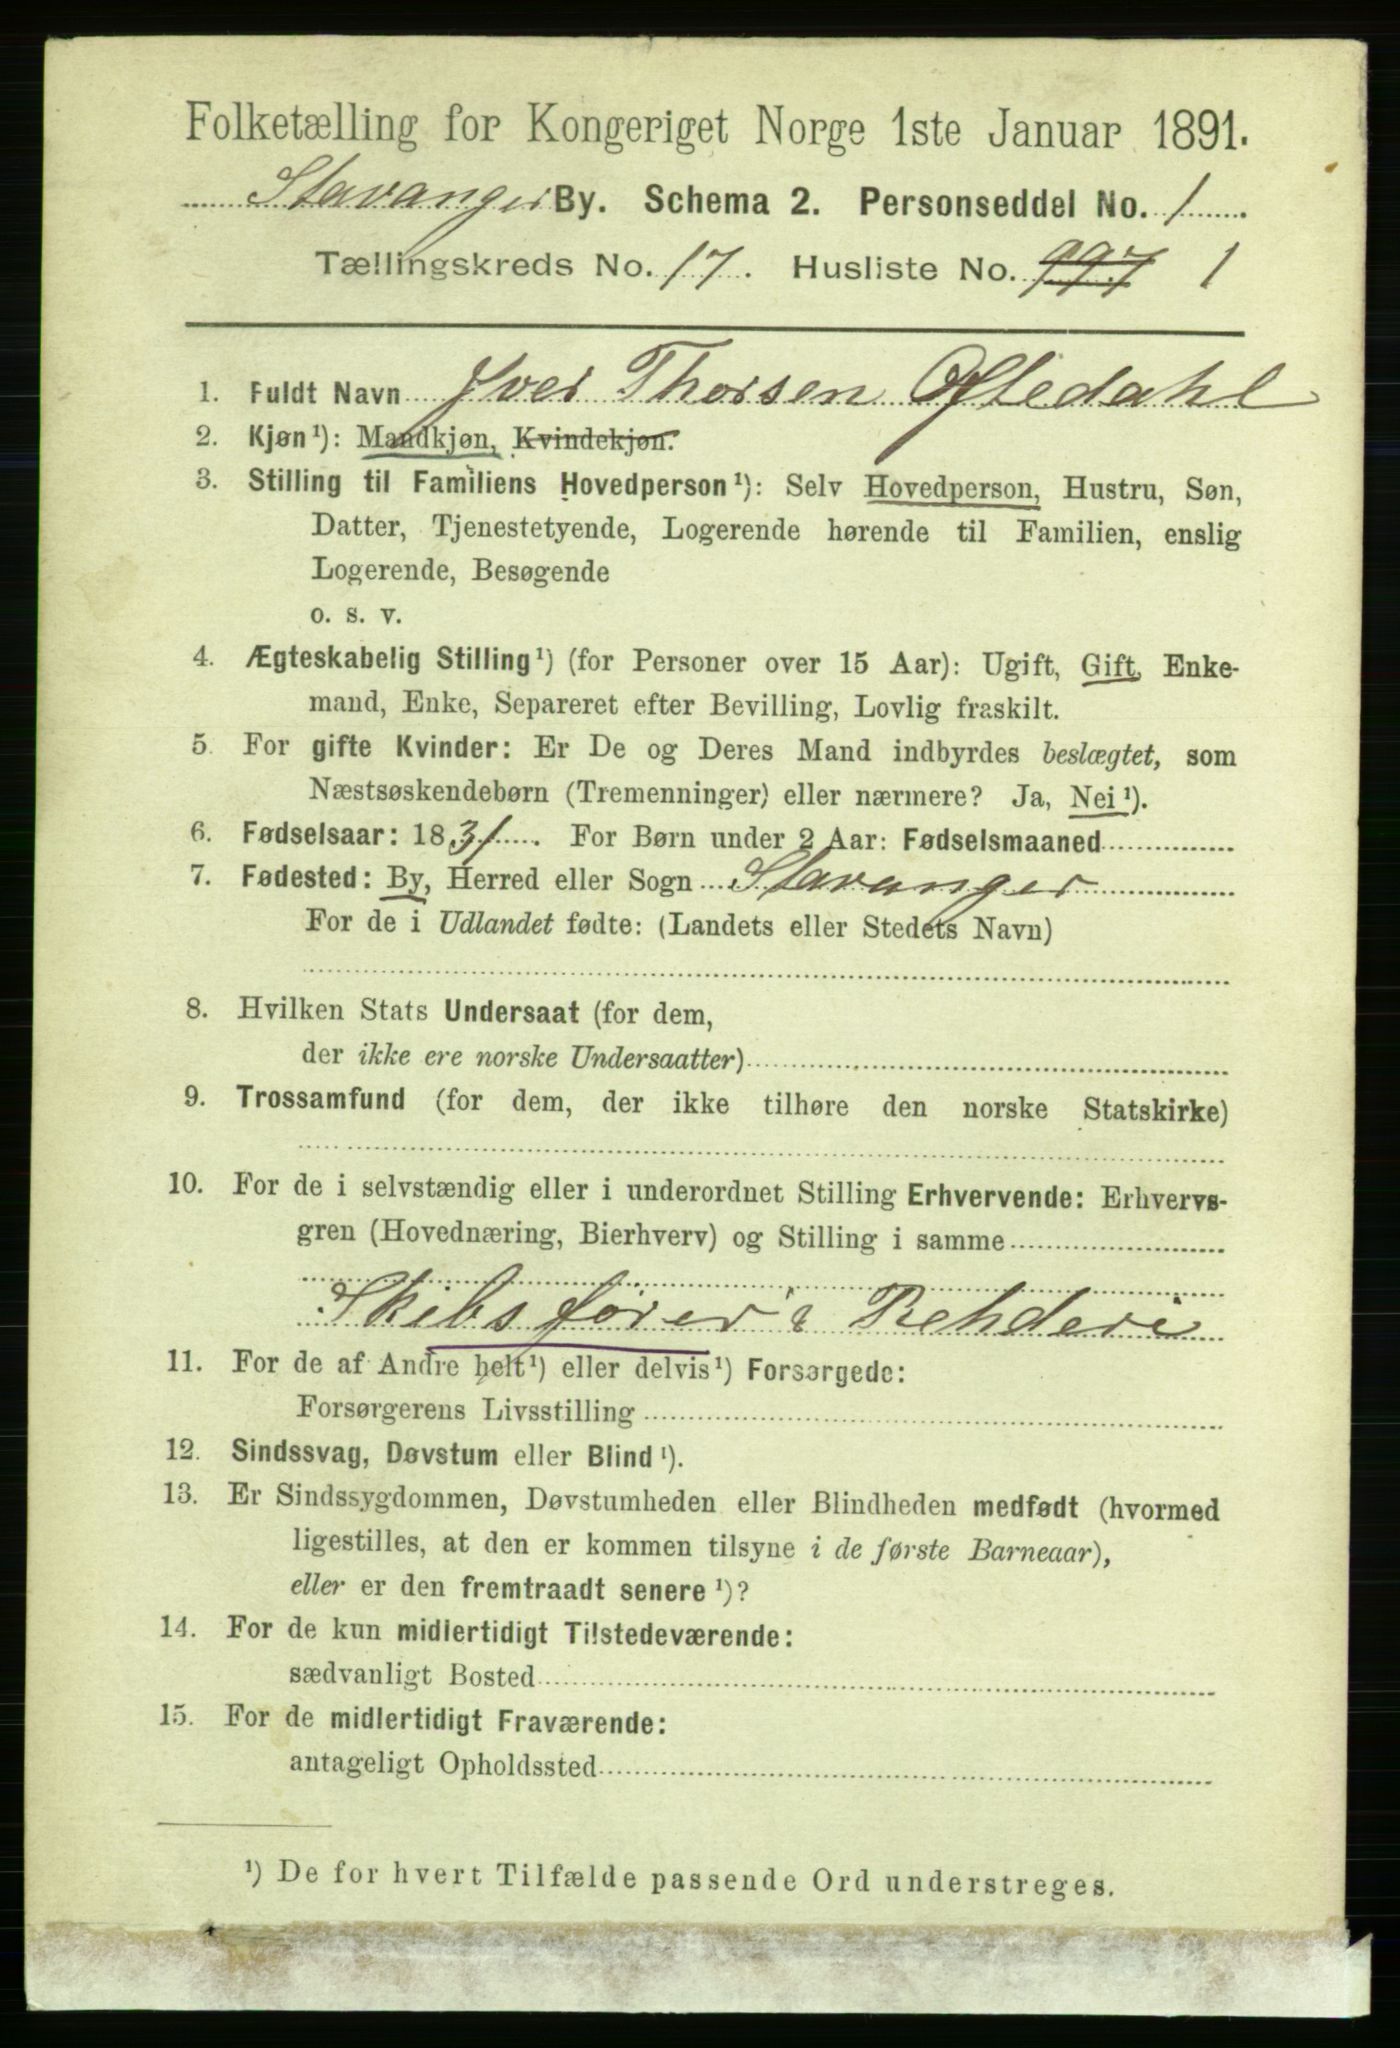 Folketælling for Kongeriget Norge 1ste Januar 1891.
Stavanger By. Schema 2. Personseddel No. 1
Tællingskreds No. 17. Husliste No. 997 1
1. Fuldt Navn Iver Thorsen Oftedahl
2. Kjøn¹): Mandkjøn, Kvindekjøn.
3. Stilling til Familiens Hovedperson¹): Selv Hovedperson, Hustru, Søn,
Datter, Tjenestetyende, Logerende hørende til Familien, enslig
Logerende, Besøgende
o. s. v.
4. Ægteskabelig Stilling¹) (for Personer over 15 Aar): Ugift, Gift, Enke-
mand, Enke, Separeret efter Bevilling, Lovlig fraskilt.
5. For gifte Kvinder: Er De og Deres Mand indbyrdes beslægtet, som
Næstsøskendebørn (Tremenninger) eller nærmere? Ja, Nei¹).
6. Fødselsaar: 1831. For Børn under 2 Aar: Fødselsmaaned
7. Fødested: By, Herred eller Sogn Stavanger
For de i Udlandet fødte: (Landets eller Stedets Navn)
8. Hvilken Stats Undersaat (for dem,
der ikke ere norske Undersaatter)
9. Trossamfund (for dem, der ikke tilhøre den norske Statskirke)
10. For de i selvstændig eller i underordnet Stilling Erhvervende: Erhvervs-
gren (Hovednæring, Bierhverv) og Stilling i samme
Skibsfører & Rehderi
11. For de af Andre helt¹) eller delvis¹) Forsørgede:
Forsørgerens Livsstilling
12. Sindssvag, Døvstum eller Blind¹).
13. Er Sindssygdommen, Døvstumheden eller Blindheden medfødt (hvormed
ligestilles, at den er kommen tilsyne i de første Barneaar),
eller er den fremtraadt senere¹)?
14. For de kun midlertidigt Tilstedeværende:
sædvanligt Bosted
15. For de midlertidigt Fraværende:
antageligt Opholdssted
¹) De for hvert Tilfælde passende Ord understreges.